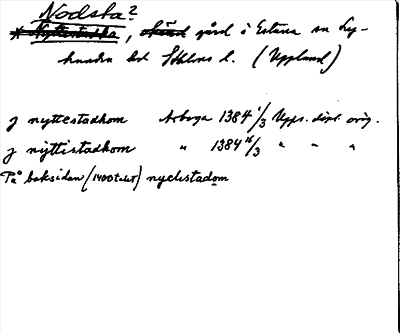 Nodsta?
* Nyttestadha, okänd gård i Estuna sn Ly-
hundra hd Sthlms l. (Uppland)
j nyttestadhom Arboga 1384 1/3 Upps. dipl. orig.
j nyttistadhom " 1384 16/3 " " "
På baksidan (1400talet) nyclistadom